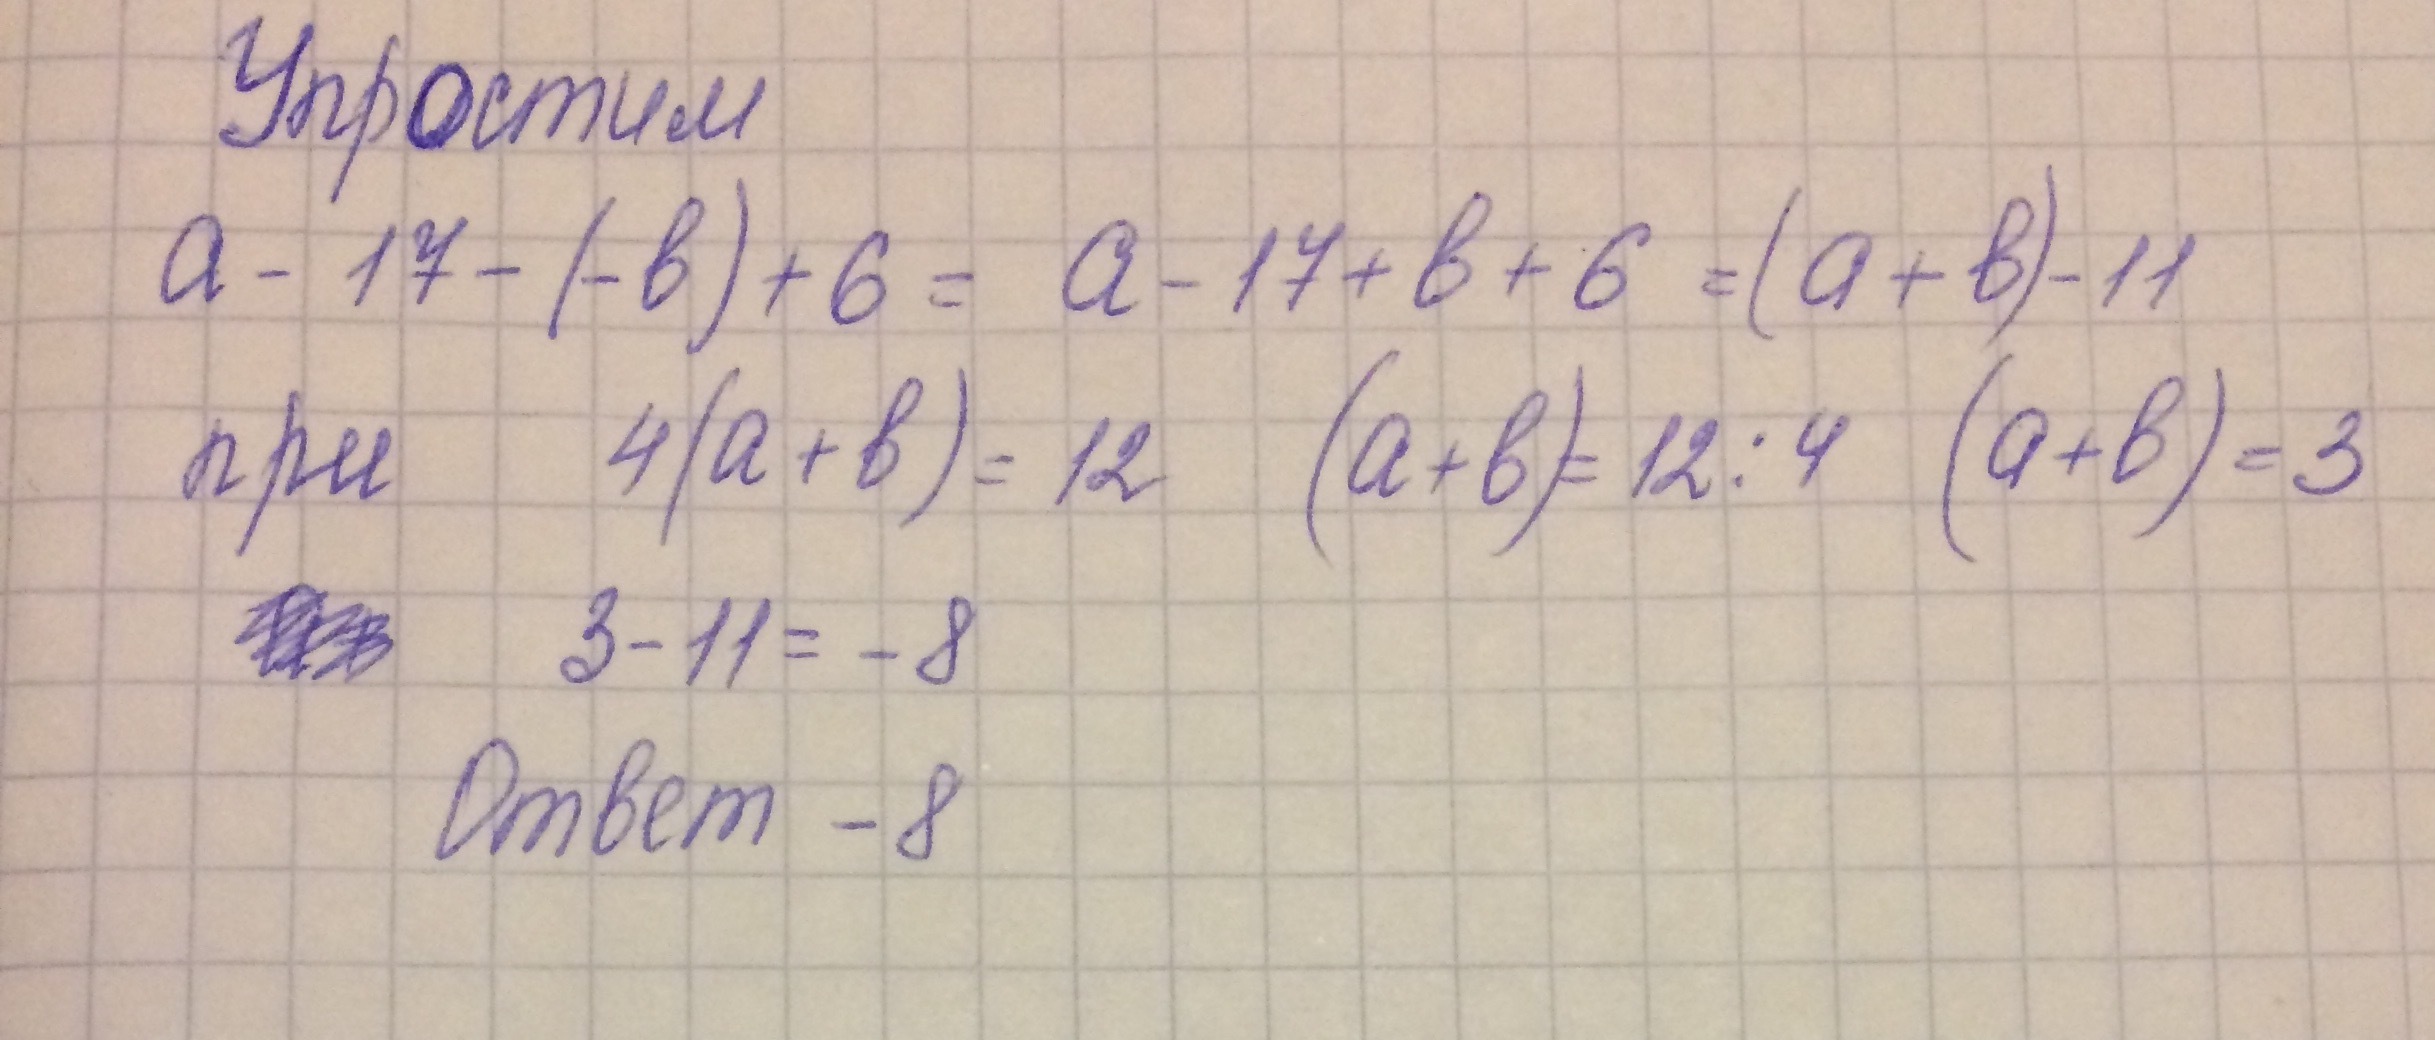 Упростим
a - 17 - (-в) + 6 = a - 17 + в + 6 = (a + в) - 11
при 4(a + в) = 12 (a + в) = 12 : 4 (a + в) = 3
3 - 11 = - 8
Ответ - 8